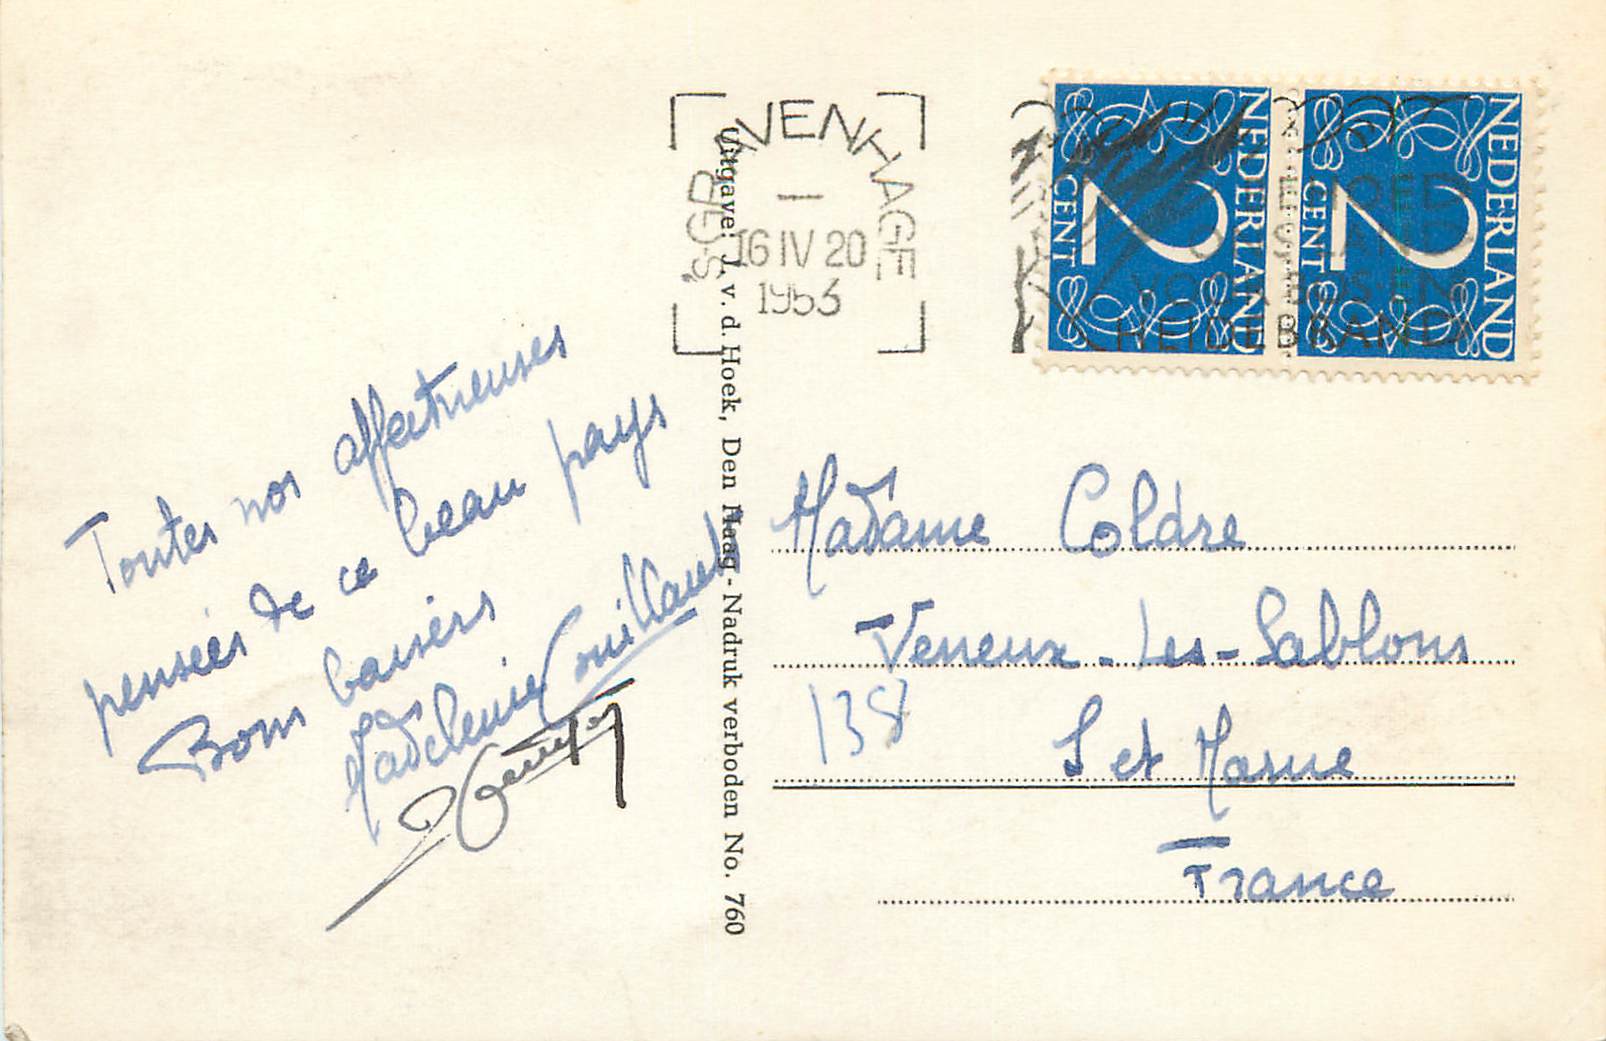 Toutes nos affectueuses
pensées de ce beau pays
Bons baisers
'S GRAVENHAGE
16 IV 20
1953
NEDERLAND
2
CENT
NEDERLAND
2
CENT
VOOR BOS- EN
HEIDEBRAND
Uitgave: J. v. d. Hoek, Den Haag - Nadruk verboden No. 760
Madame Coldre
Veneux-Les-Sablons
138
S et Marne
France